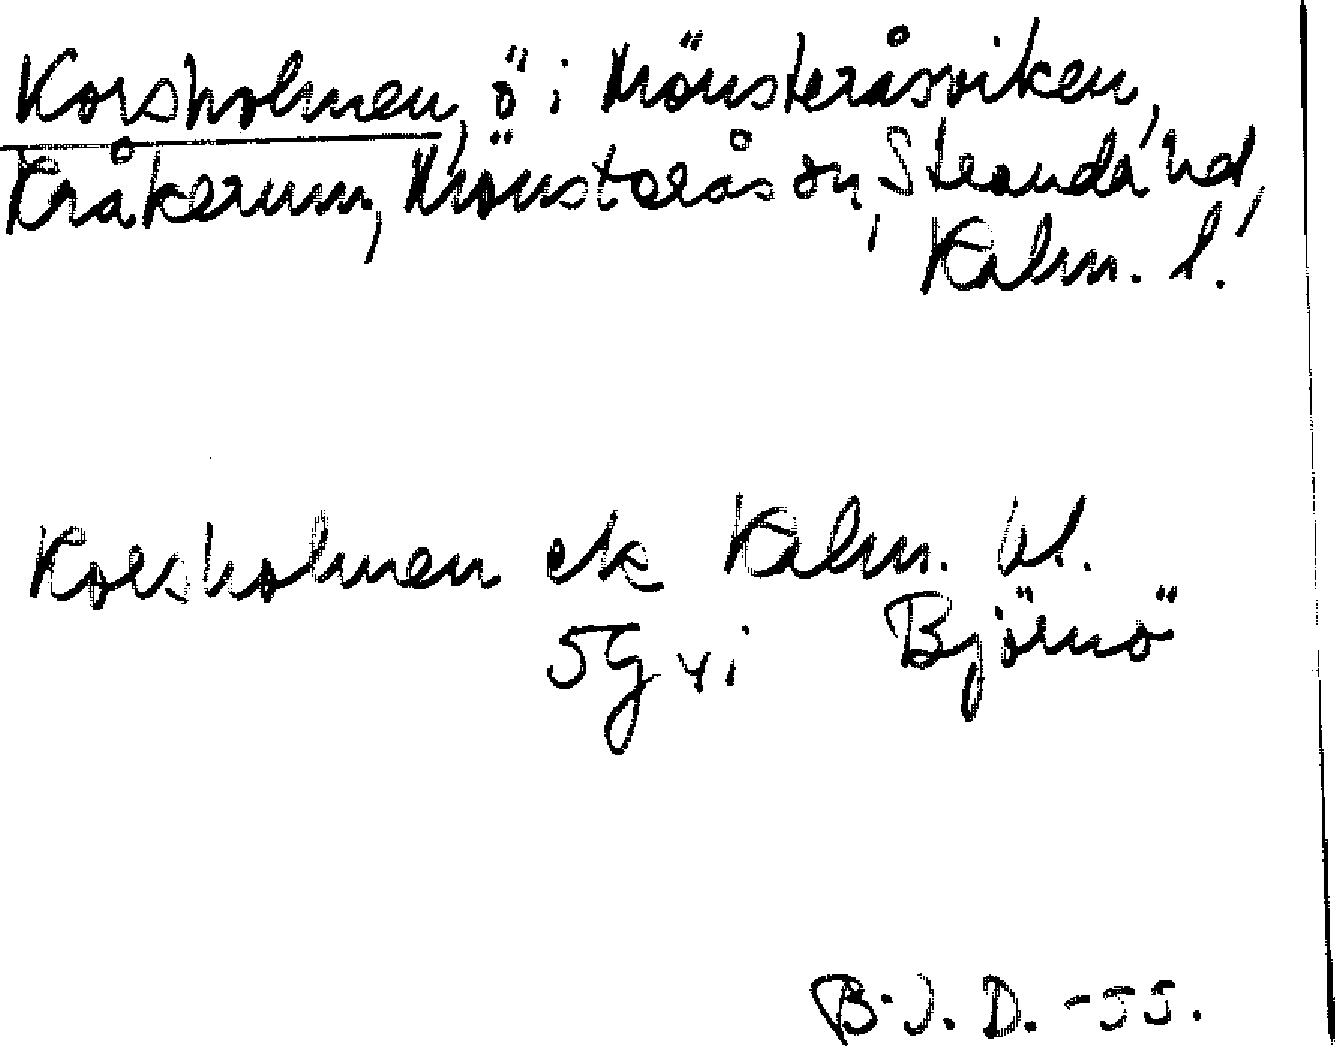 Korsholmen, ö i Mönsteråsviken,
Kråkerum, Mönsterås sn, Stranda hd,
Kalm. l.
Korsholmen ek Kalm. bl.
5G vi Björnö
B.J.D. -55.